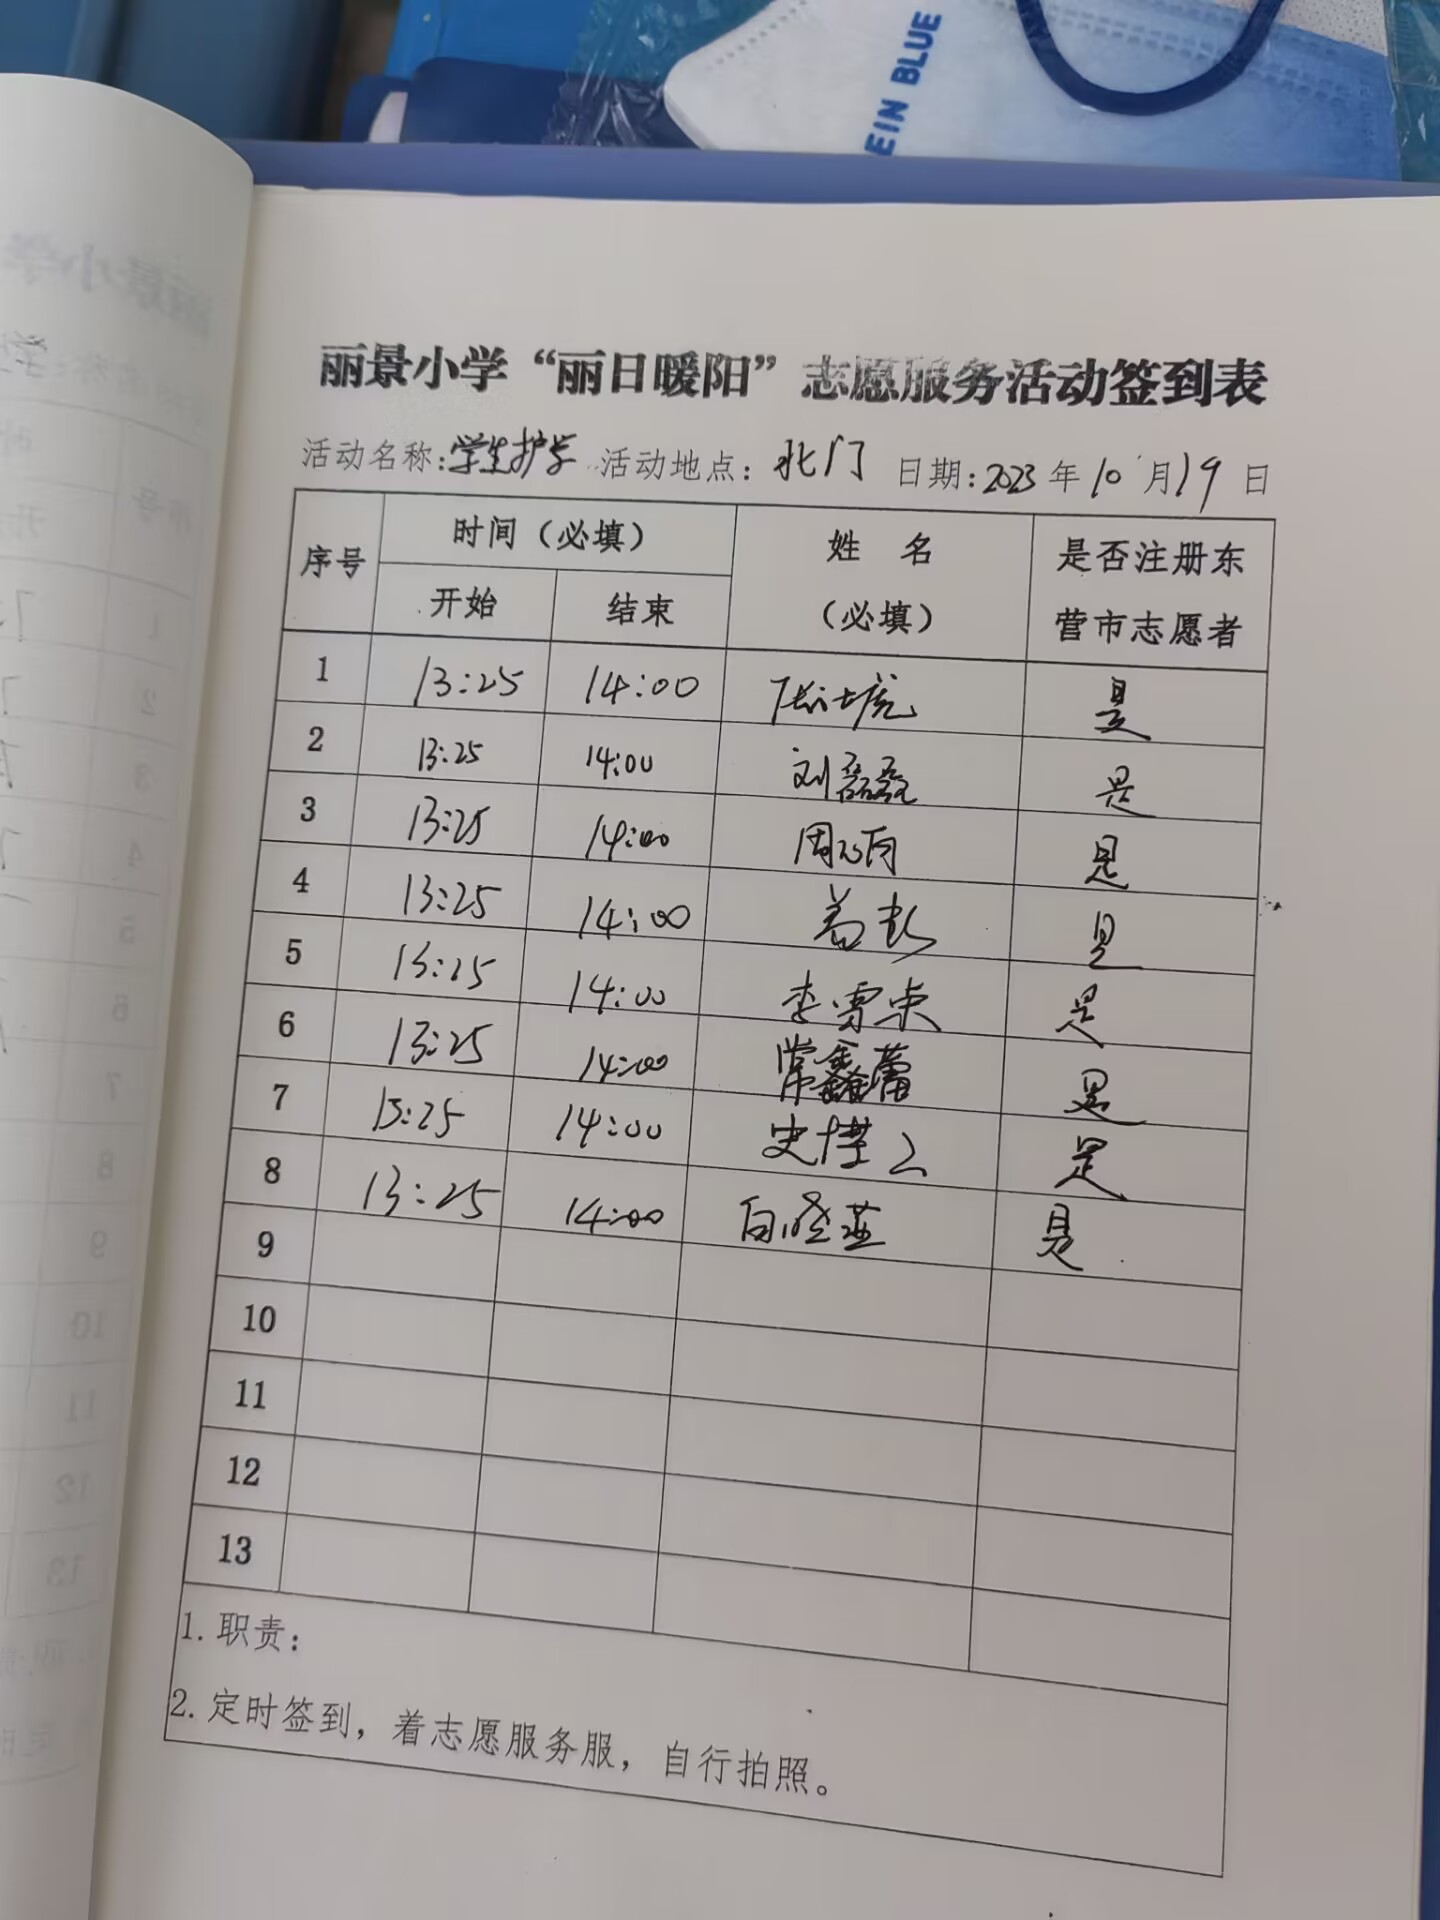 EIN BLUE
丽景小学“丽日暖阳”志愿服务活动签到表
活动名称:学生护学 活动地点: 北门 日期:2023年10月19日
序号 时间（必填） 姓 名（必填） 是否注册东营市志愿者
开始 结束
1 13:25 14:00 是
2 13:25 14:00 刘磊磊 是
3 13:25 14:00 周 是
4 13:25 14:00 是
5 13:25 14:00 李雪 是
6 13:25 14:00 常鑫蕾 是
7 13:25 14:00 史 是
8 13:25 14:00 白晓燕 是
9
10
11
12
13
1. 职责:
2. 定时签到，着志愿服务服，自行拍照。